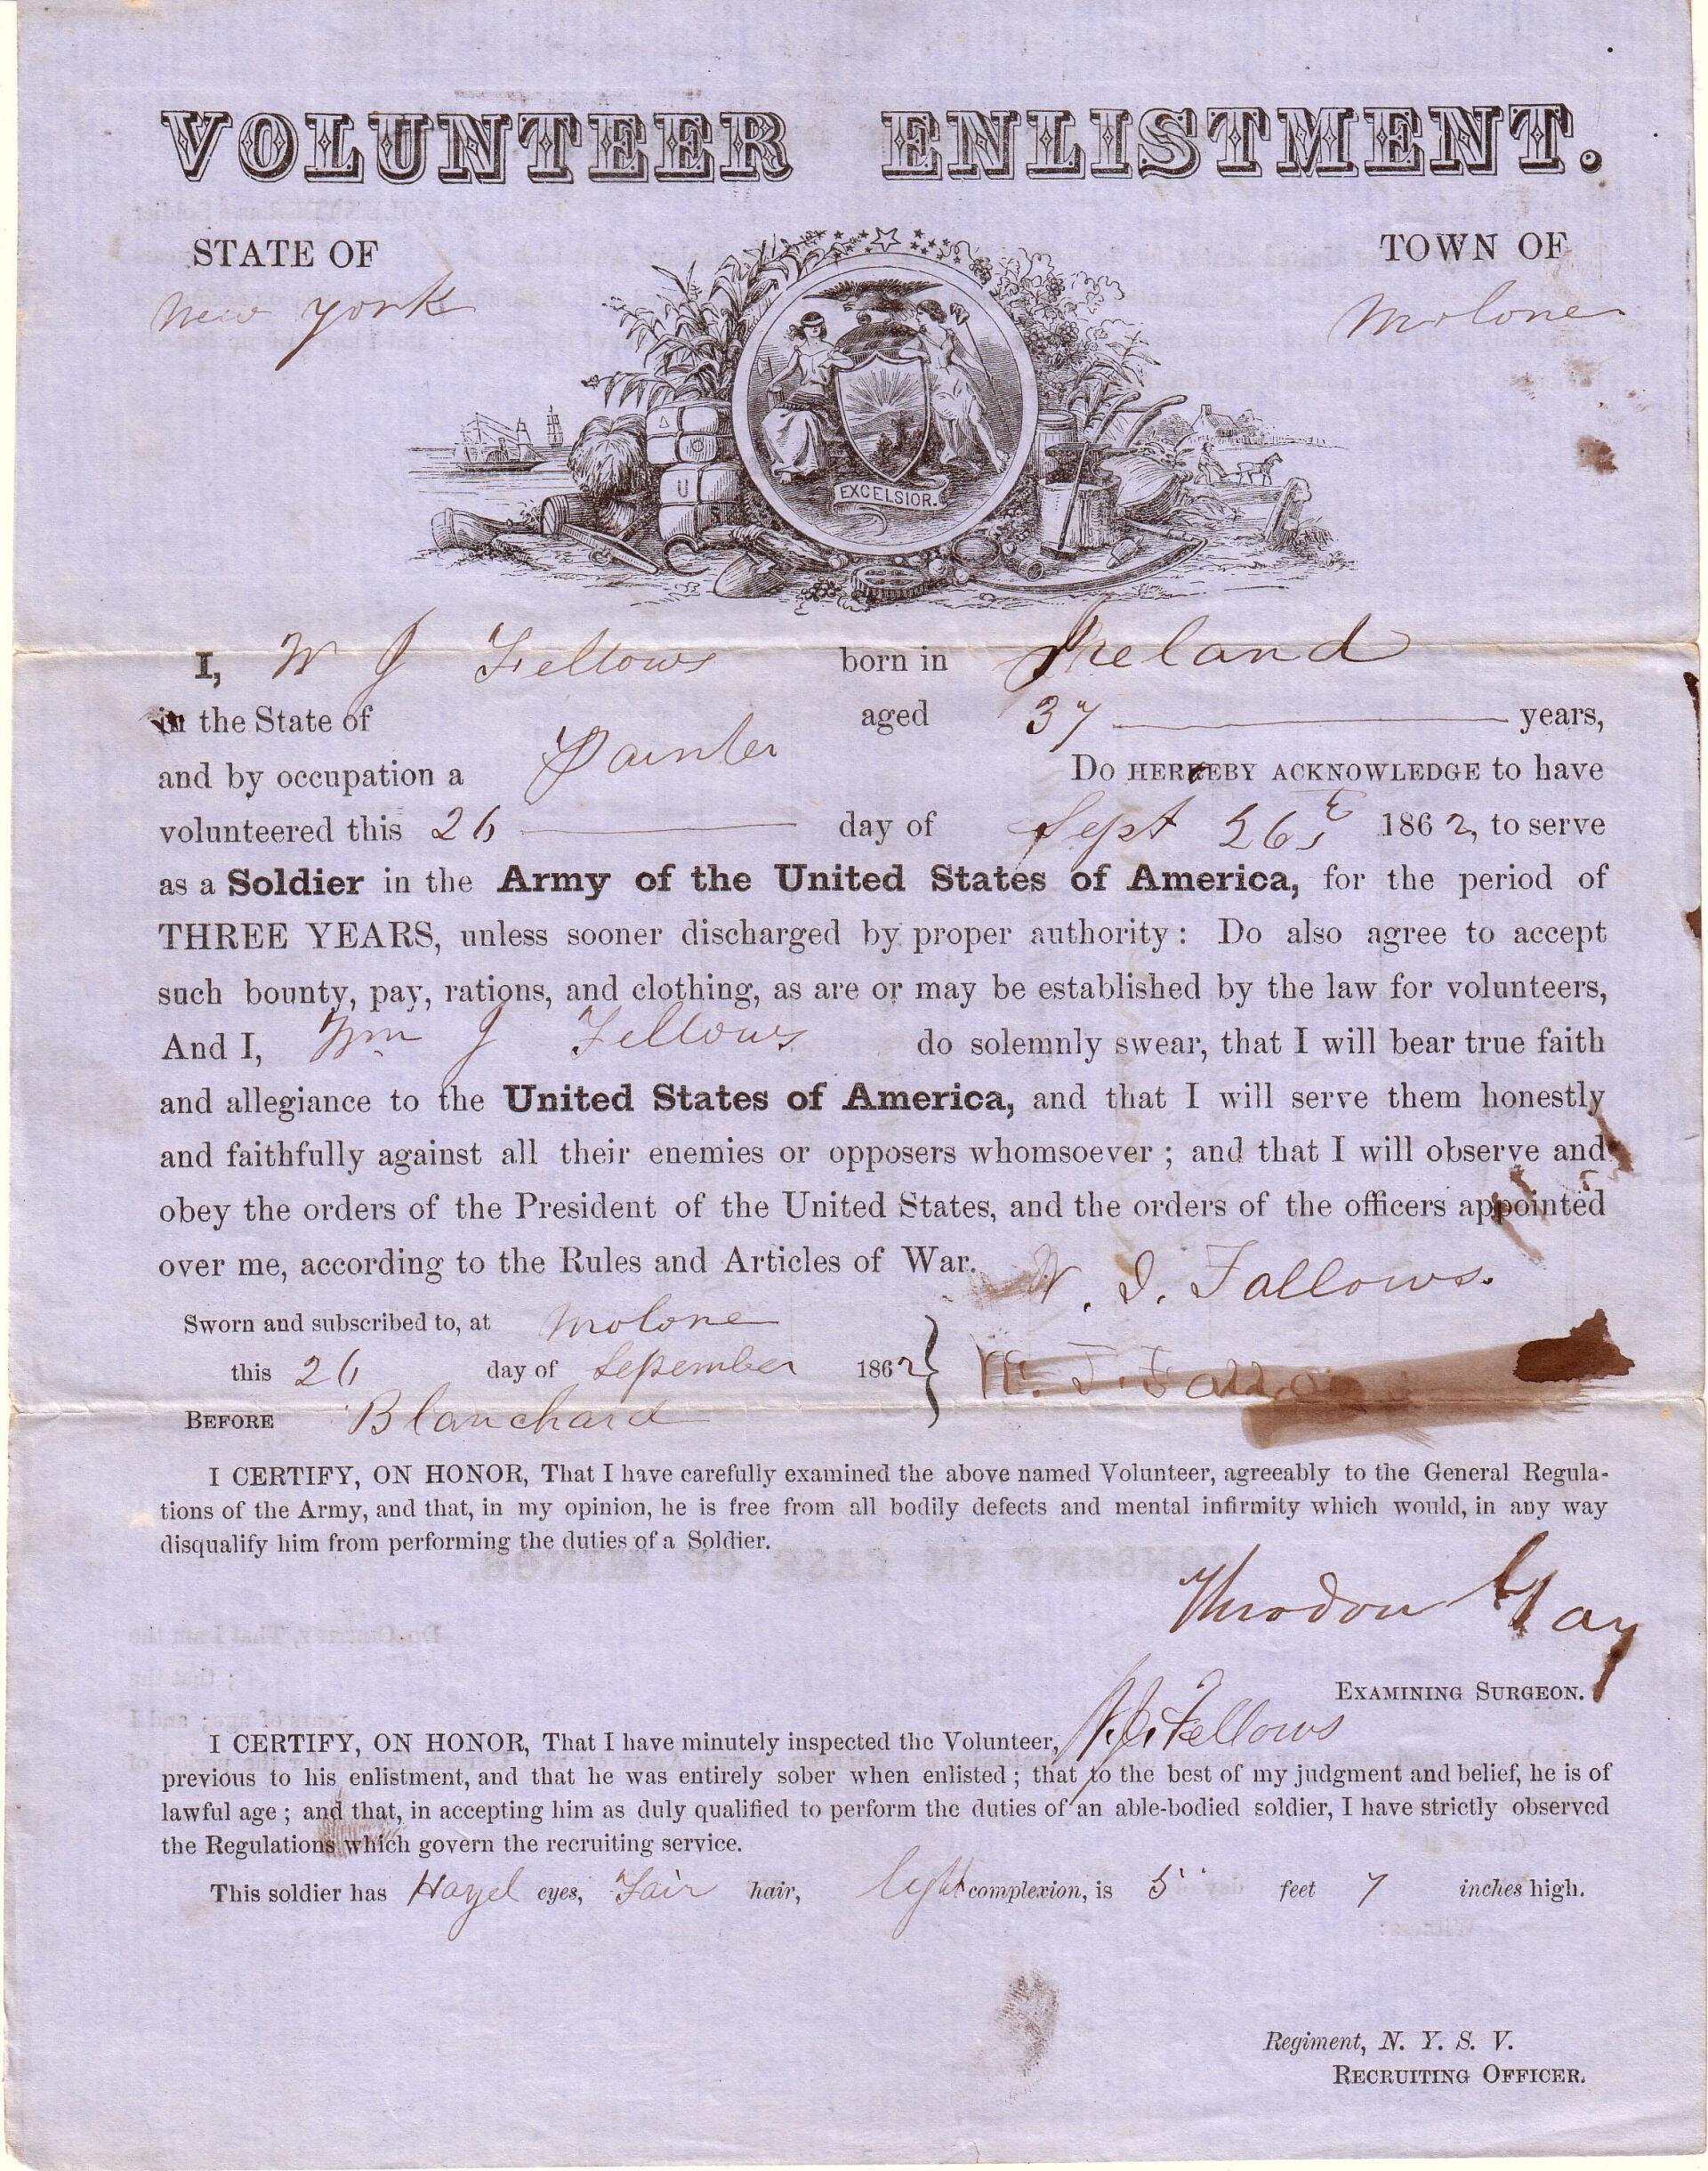 VOLUNTEER ENLISTMENT.
STATE OF
TOWN OF
New York
Molone
EXCELSIOR.
I, W J Fellows born in Ireland
in the State of aged 37 years,
and by occupation a Painter Do HEREBY ACKNOWLEDGE to have
volunteered this 26 day of Sept 26t 1862, to serve
as a Soldier in the Army of the United States of America, for the period of
THREE YEARS, unless sooner discharged by proper authority: Do also agree to accept
such bounty, pay, rations, and clothing, as are or may be established by the law for volunteers,
And I, Wm J Fellows do solemnly swear, that I will bear true faith
and allegiance to the United States of America, and that I will serve them honestly
and faithfully against all their enemies or opposers whomsoever; and that I will observe and
obey the orders of the President of the United States, and the orders of the officers appointed
over me, according to the Rules and Articles of War. W. J. Fallows.
Sworn and subscribed to, at Molone
this 26 day of September 1862
BEFORE Blanchard
I CERTIFY, ON HONOR, That I have carefully examined the above named Volunteer, agreeably to the General Regula-
tions of the Army, and that, in my opinion, he is free from all bodily defects and mental infirmity which would, in any way
disqualify him from performing the duties of a Soldier.
Theodore Gay
EXAMINING SURGEON.
I CERTIFY, ON HONOR, That I have minutely inspected the Volunteer, W. J. Fellows
previous to his enlistment, and that he was entirely sober when enlisted; that to the best of my judgment and belief, he is of
lawful age; and that, in accepting him as duly qualified to perform the duties of an able-bodied soldier, I have strictly observed
the Regulations which govern the recruiting service.
This soldier has Hazel eyes, Fair hair, light complexion, is 5 feet 7 inches high.
Regiment, N. Y. S. V.
RECRUITING OFFICER.